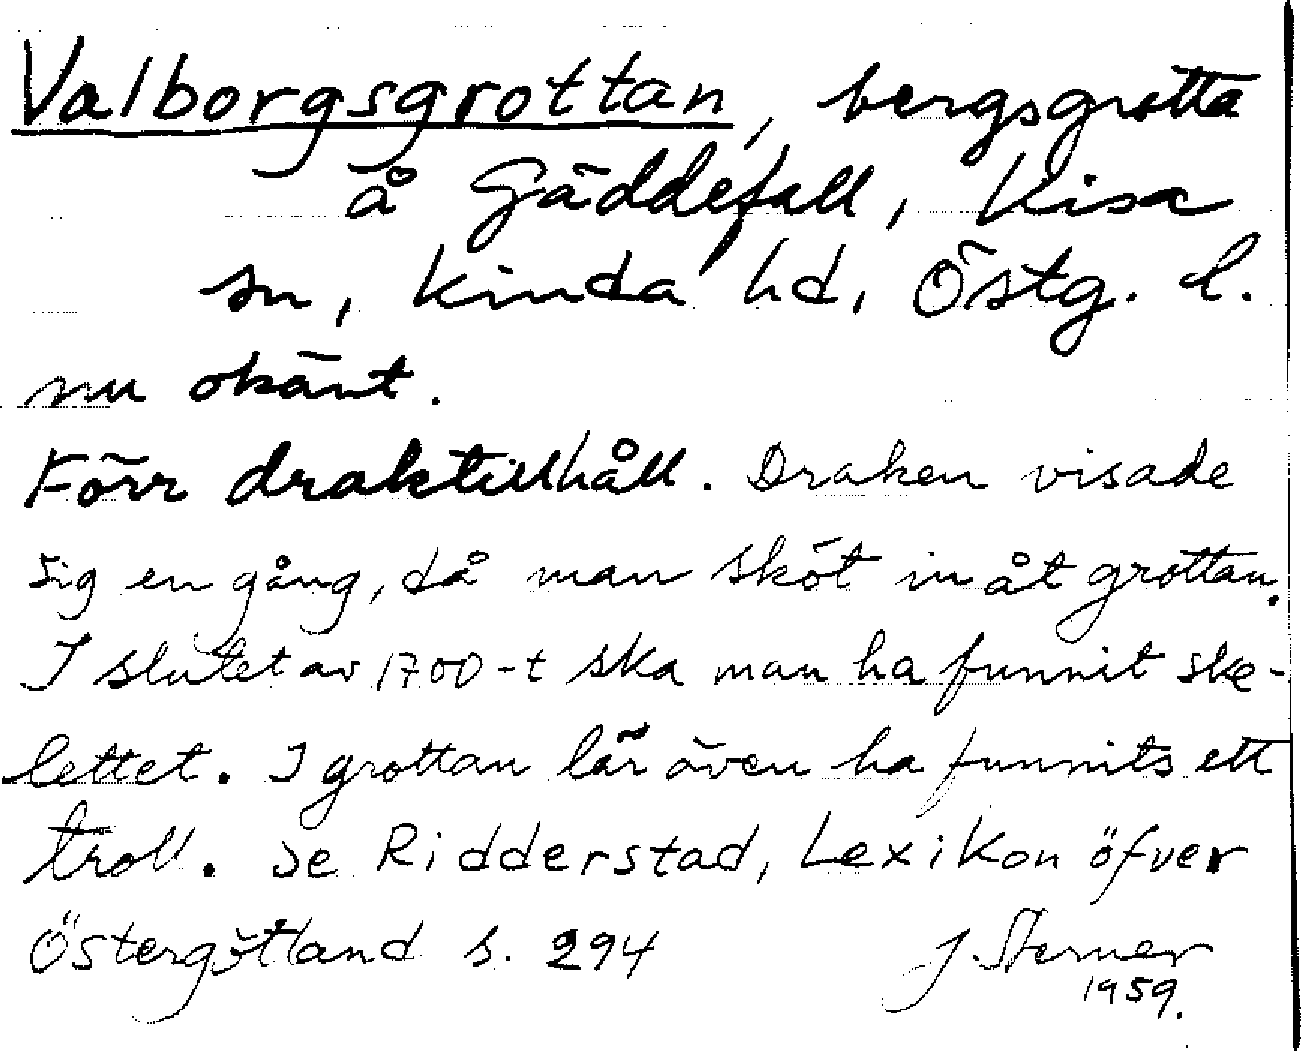 Valborgsgrottan, bergsgrotta
å Gäddefall, Kisa
sn, Kinda hd, Östg. l.
nu okänt.
Förr draktillhåll. Draken visade
sig en gång, då man sköt inåt grottan.
I slutet av 1700-t ska man ha funnit ske-
lettet. I grottan lär även ha funnits ett
troll. Se Ridderstad, Lexikon öfver
Östergötland s. 294
J. Sterner
1959.